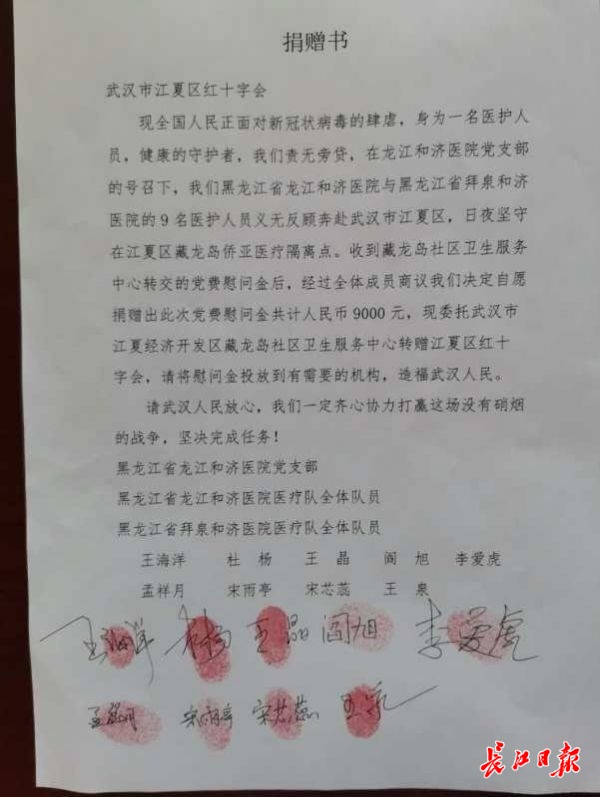 捐赠书
武汉市江夏区红十字会
现全国人民正面对新冠状病毒的肆虐，身为一名医护人
员，健康的守护者，我们责无旁贷，在龙江和济医院党支部
的号召下，我们黑龙江省龙江和济医院与黑龙江省拜泉和济
医院的9名医护人员义无反顾奔赴武汉市江夏区，日夜坚守
在江夏区藏龙岛侨亚医疗隔离点。收到藏龙岛社区卫生服务
中心转交的党费慰问金后，经过全体成员商议我们决定自愿
捐赠出此次党费慰问金共计人民币9000元，现委托武汉市
江夏经济开发区藏龙岛社区卫生服务中心转赠江夏区红十
字会，请将慰问金投放到有需要的机构，造福武汉人民。
请武汉人民放心，我们一定齐心协力打赢这场没有硝烟
的战争，坚决完成任务！
黑龙江省龙江和济医院党支部
黑龙江省龙江和济医院医疗队全体队员
黑龙江省拜泉和济医院医疗队全体队员
王海洋 杜 杨 王 晶 阎 旭 李爱虎
孟祥月 宋雨亭 宋芯蕊 王 泉
王海洋 杜杨 王晶 阎旭 李爱虎
孟祥月 宋雨亭 宋芯蕊 王泉
长江日报